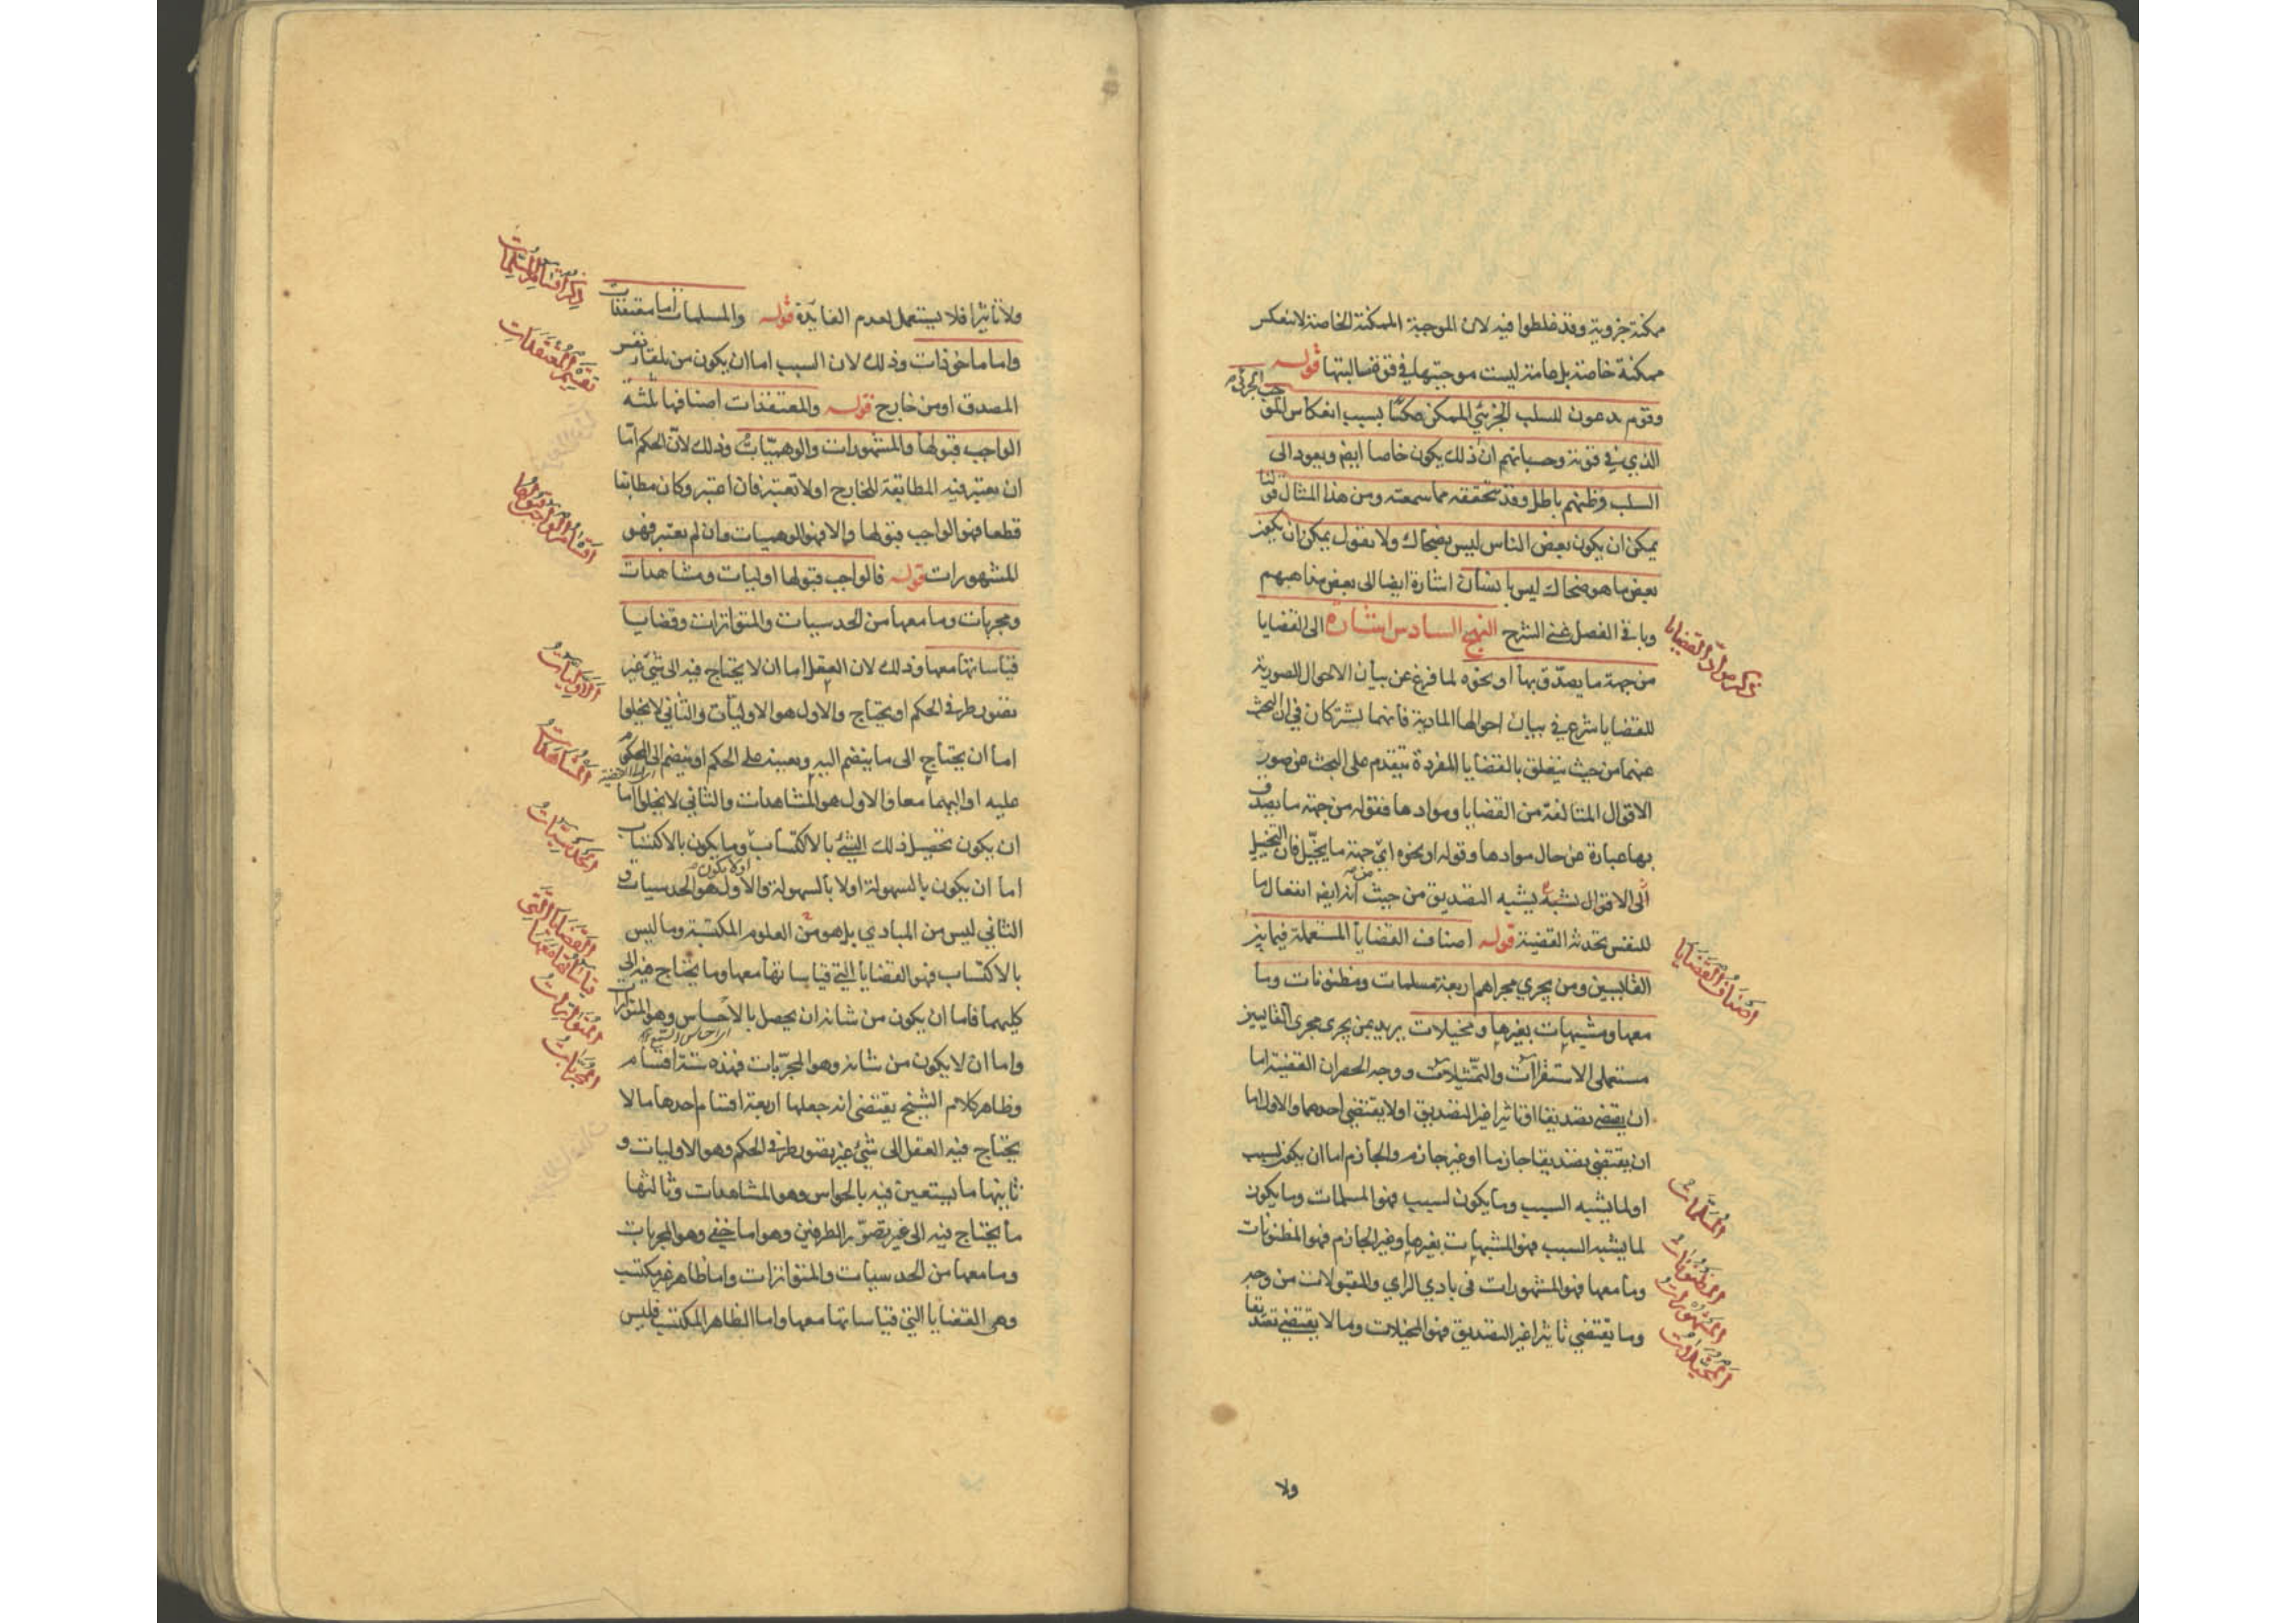 ممكنة جزوية وقد غلطوا فيه لان الموجبة الممكنة الخاصة لا تنعكس
ممكنة خاصة بل عامة ليست موجبتها في قوة سالبتها قوله
وقوم يدعون للسلب الجزئي الممكن عكسا بسبب انعكاس الموجب الجزئي
الذي في قوته وحسبانهم ان ذلك يكون خاصا ايضا ويعود الى
السلب وظنهم باطل وقد تحققه مما سمعته ومن هذا المثال قولنا
يمكن ان يكون بعض الناس ليس بضحاك ولا نقول يمكن ان يكون
بعض ما هو ضحاك ليس بانسان اشارة ايضا الى بعض مذاهبهم
وباقي الفصل غني الشرح النهج السادس اشارة الى القضايا
ذكر مواد القضايا
من جهة ما يصدق بها او نحوه لما فرغ عن بيان الاحوال الصورية
للقضايا شرع في بيان احوالها المادية فانهما يشتركان في ان البحث
عنهما من حيث يتعلق بالقضايا المفردة يتقدم على البحث عن صور
الاقوال المتالفة من القضايا وموادها فقوله من جهة ما يصدق
بها عبارة عن حال موادها وقوله او نحوه اي جهة ما يخيل فان التخييل
الى الاقوال يشبه التصديق من حيث انه ايضا انفعال ما
للنفس تحدثه القضية قوله اصناف القضايا المستعملة فيما بين
اصناف القضايا
القايسين ومن يجري مجراهم اربعة مسلمات ومظنونات وما
معها ومشبهات بغيرها ومخيلات يريد بمن يجري مجرى القايسين
مستعملي الاستقرآت والتمثيلات ووجه الحصر ان القضية اما
ان يقتضي تصديقا او تاثيرا غير التصديق او لا يقتضي احدهما والاول اما
ان يقتضي تصديقا جازما او غير جازم والجازم اما ان يكون لسبب
او لما يشبه السبب وما يكون لسبب فهو المسلمات وما يكون
المسلمات
لما يشبه السبب فهو المشبهات بغيرها وغير الجازم فهو المظنونات
المظنونات
وما معها فهو المشهورات في بادي الراي والمقبولات من وجه
المشهورات
وما يقتضي تاثيرا غير التصديق فهو المخيلات وما لا يقتضي تصديقا
المخيلات
ولا
ذكر اقسام المسلمات
ولا تاثيرا فلا يستعمل لعدم الفايدة قوله والمسلمات اما معتقدات
تقسيم المعتقدات
واما ماخوذات وذلك لان السبب اما ان يكون من تلقاء نفس
المصدق او من خارج قوله والمعتقدات اصنافها ثلثة
الواجب قبولها والمشهورات والوهميات وذلك لان الحكم اما
ان يعتبر فيه المطابقة للخارج او لا تعتبر فان اعتبر وكان مطابقا
اقسام الواجب قبولها
قطعا فهو الواجب قبولها والا فهو الوهميات وان لم يعتبر فهو
المشهورات قوله فالواجب قبولها اوليات ومشاهدات
ومجربات وما معها من الحدسيات والمتواترات وقضايا
قياساتها معها وذلك لان العقل اما ان لا يحتاج فيه الى شئ غير
الاوليات
تصور طرفي الحكم او يحتاج والاول هو الاوليات والثاني لا يخلوا
اما ان يحتاج الى ما ينضم اليه ويعينه على الحكم او ينضم الى المحكوم
المشاهدات
عليه او اليهما معا والاول هو المشاهدات والثاني لا يخلوا اما
ان يكون تحصيل ذلك الشئ بالاكتساب وما يكون بالاكتساب
الحدسيات
او لا يكون
اما ان يكون بالسهولة او لا بالسهولة والاول هو الحدسيات و
الثاني ليس من المبادي بل هو من العلوم المكتسبة وما ليس
القضايا التي قياساتها معها
بالاكتساب فهو القضايا التي قياساتها معها وما يحتاج فيه الى
كليهما فاما ان يكون من شانه ان يحصل بالاحساس وهو المتواترات
المتواترات
واما ان لا يكون من شانه وهو المجربات فهذه ستة اقسام
المجربات
وظاهر كلام الشيخ يقتضي انه جعلها اربعة اقسام احدها ما لا
يحتاج فيه العقل الى شئ غير تصور طرفي الحكم وهو الاوليات و
ثانيها ما يستعين فيه بالحواس وهو المشاهدات وثالثها
ما يحتاج فيه الى غير تصور الطرفين وهو اما خفي وهو المجربات
وما معها من الحدسيات والمتواترات واما ظاهر غير مكتسب
وهي القضايا التي قياساتها معها واما الظاهر المكتسب فليس